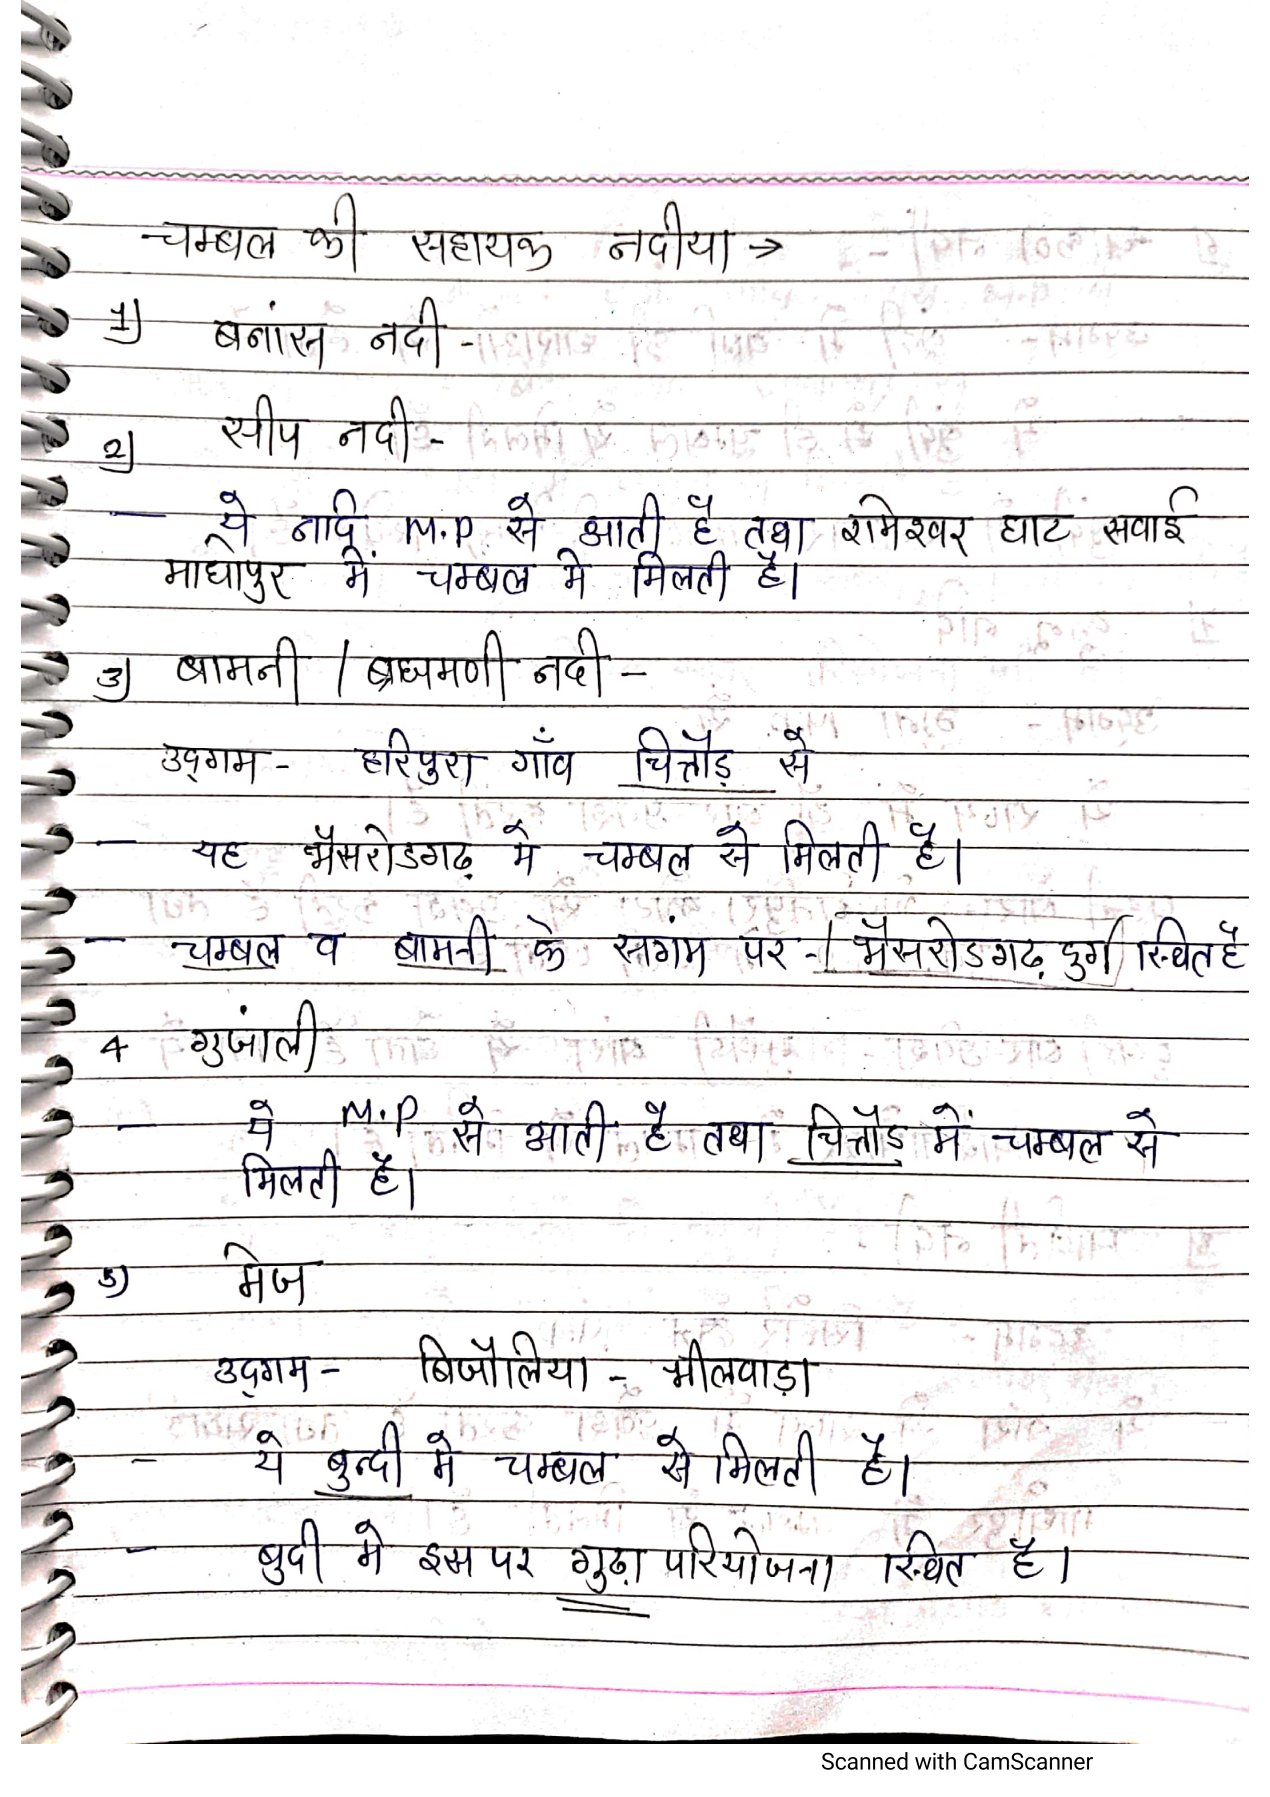 चम्बल की सहायक नदीया →
1) बनांस नदी -
2) सीप नदी -
— ये नादि M.P से आती है तथा रामेश्वर घाट सवाई
माधोपुर में चम्बल मे मिलती है।
3) बामनी / ब्राह्यमणी नदी -
उद्गम - हरिपुरा गाँव चित्तौड़ से
— यह भैसरोडगढ़ मे चम्बल से मिलती है।
— चम्बल व बामनी के सागंम पर - भैसरोडगढ़ दुर्ग स्थित है
4 गुजांली
— ये M.P से आती है तथा चित्तौड़ में चम्बल से
मिलती है।
5) मेज
उद्गम - बिजौलिया - भीलवाड़ा
- ये बुन्दी मे चम्बल से मिलती है।
- बुदी मे इस पर गुढ़ा परियोजना स्थित है।
Scanned with CamScanner